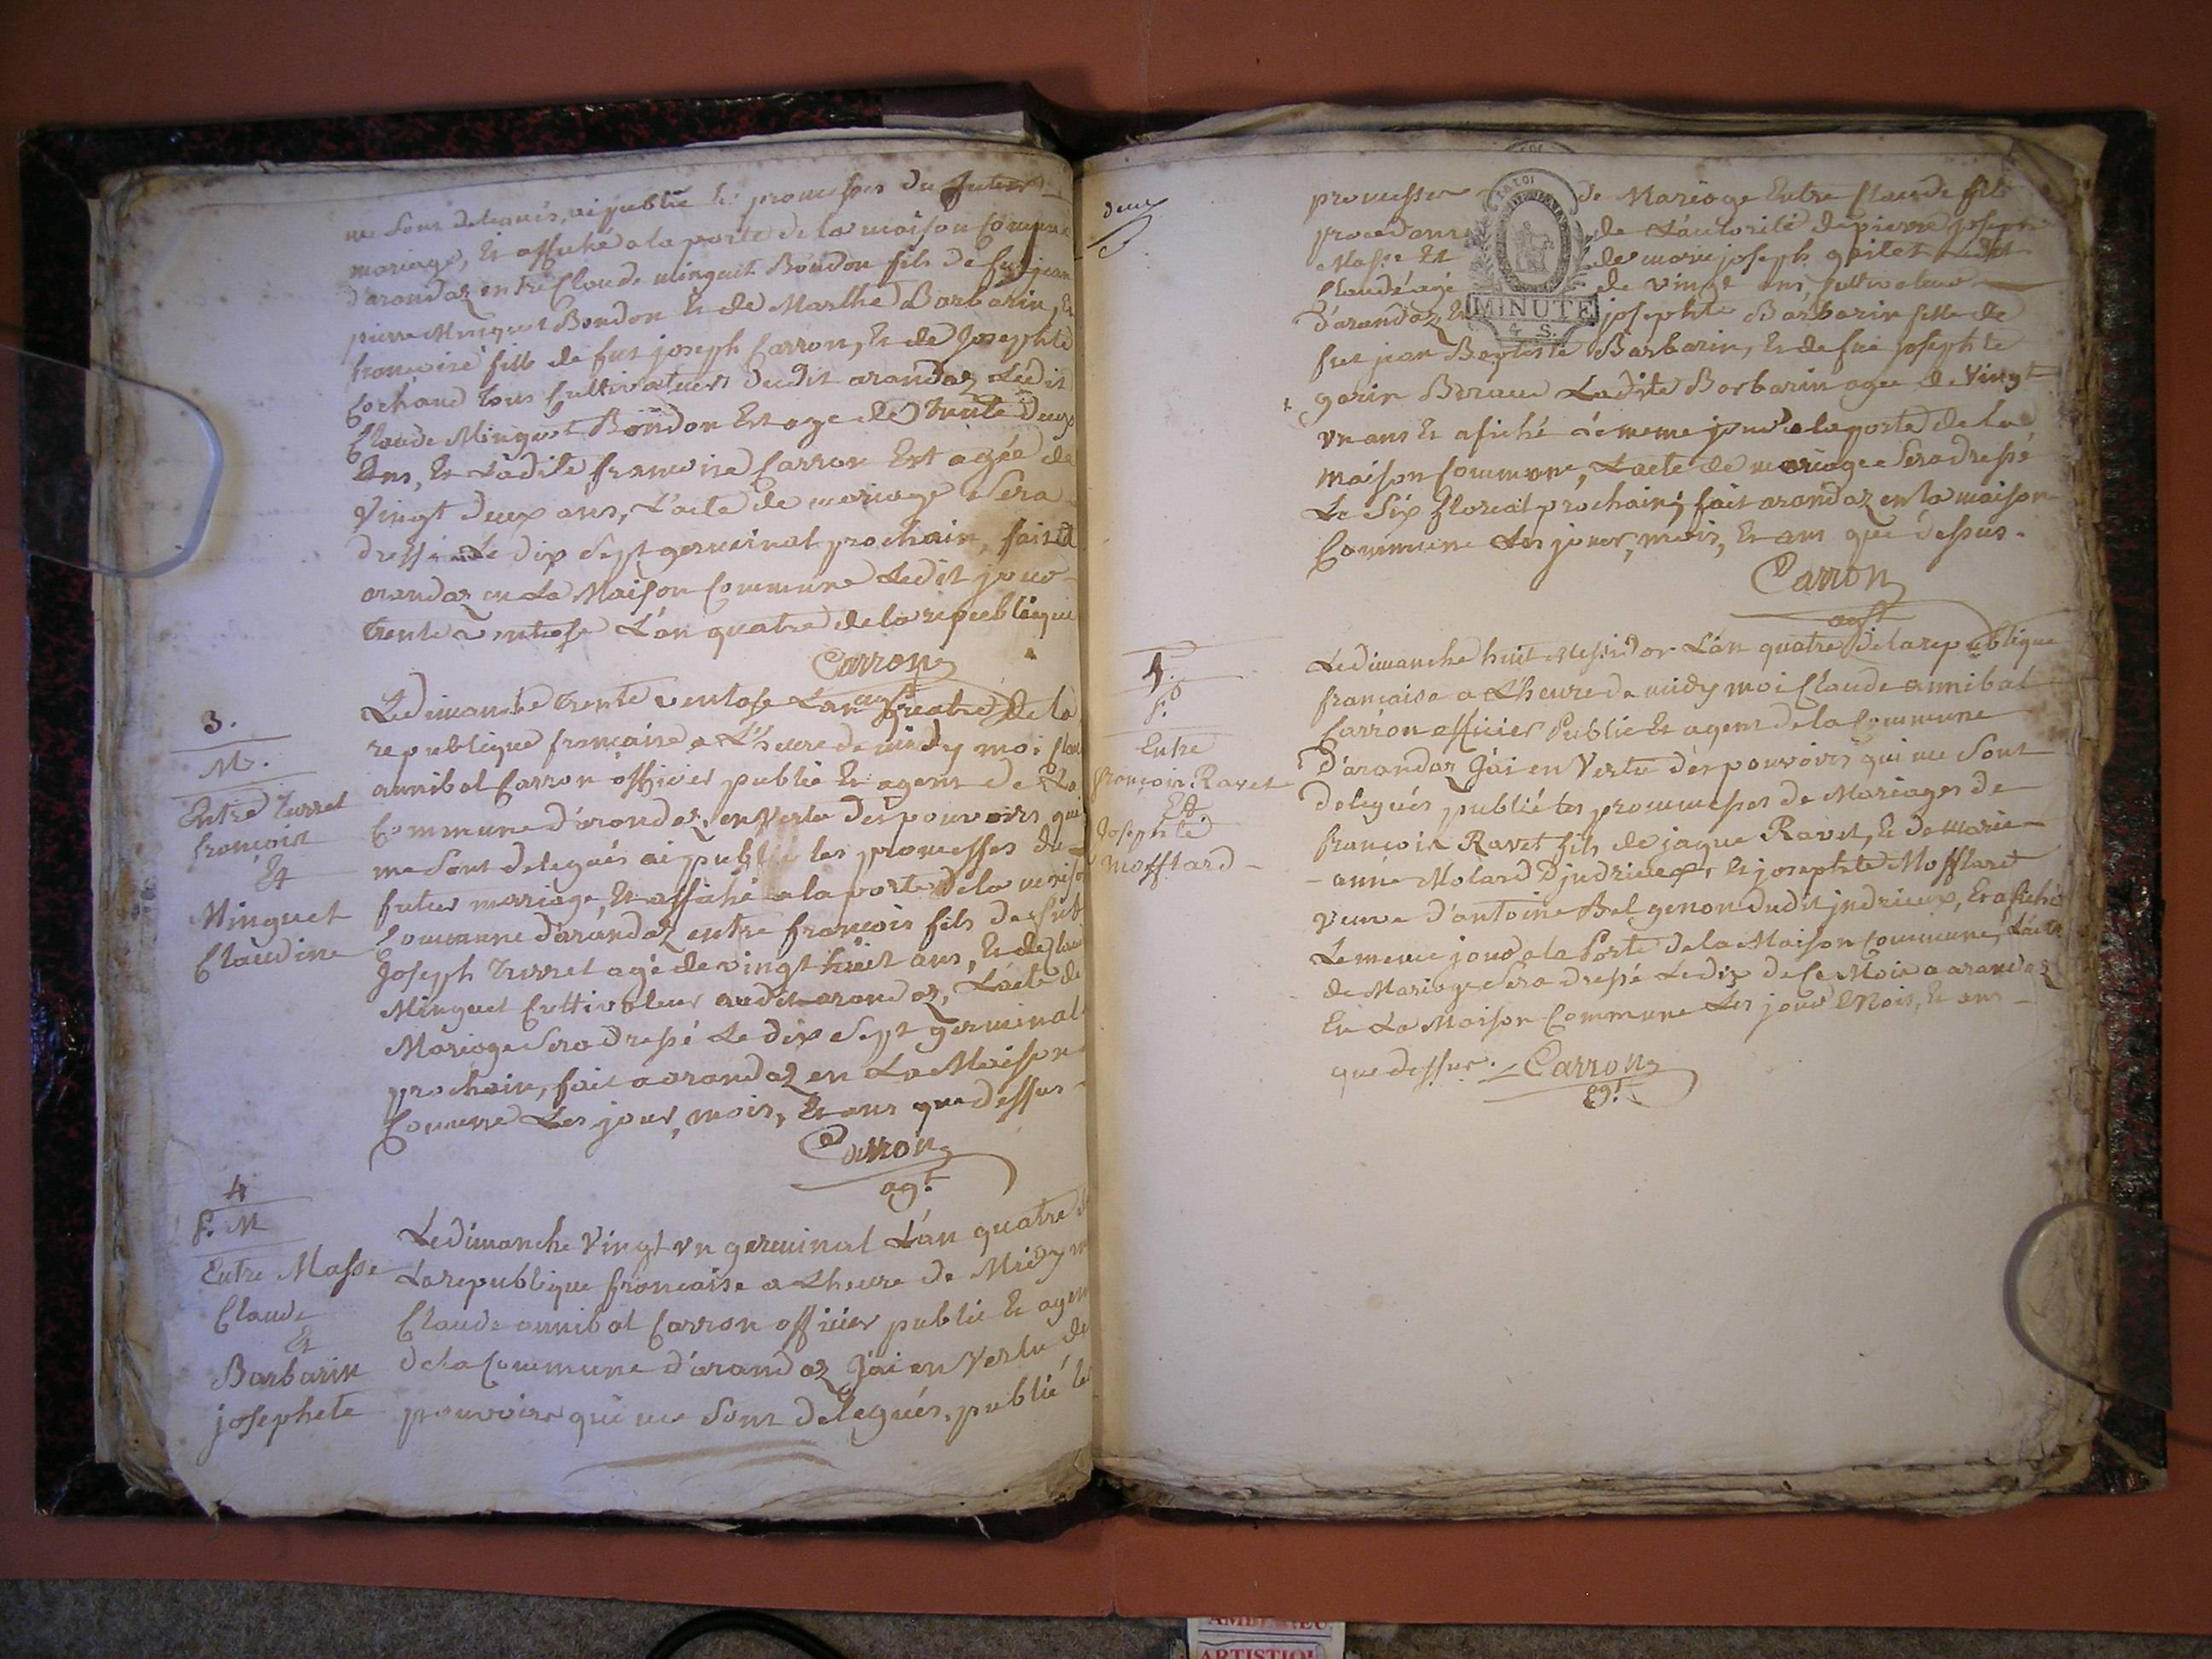 me sont delegués, ai publié les promesses du futur
mariage, et affiché a la porte de la maison commune
d'arandaz entre Claude minguet Bondon fils de fut jean
pierre Minguet Bondon et de Marthe Barbarin, et
françoise fille de fut joseph Carron, et de Josephte
Cochand tous cultivateurs dudit arandaz Ledit
Claude Minguet Bondon est age de trente deux
ans, et Ladite francoise Carron Est agée de
Vingt deux ans, L'acte de mariage sera
dressé Le dix sept germinal prochain, fait a
arandaz en La Maison commune Ledit jour
trente ventose L'an quatre de la republique
Carron
agt
3.
M.
Entre Turrel
françois
Et
Minguet
Claudine
Le dimanche trente ventose L'an quatre de la
republique française a L'heure de midy moi Claude
annibal Carron officier public et agent de La
Commune d'arandaz, en Vertu des pouvoirs qui
me sont delegués ai publié les promesses du
futur mariage, et affiché a la porte de la maison
Commune d'arandaz entre françois fils de fut
Joseph Turrel agé de vingt huit ans, et de
Minguet Cultivateur audit arandaz, L'acte de
Mariage sera dressé Le dix Sept germinal
prochain, fait a arandaz en La Maison
Commune Les jour, mois, et ans que dessus
Carron
agt
4
P. M
Entre Masse
Claude
Et
Barbarin
josephete
Le dimanche Vingt un germinal L'an quatre de
La republique francaise a L'heure de Midy moi
Claude annibal Carron officier public et agent
de la Commune d'arandaz J'ai en Vertu des
pouvoirs qui me sont delegués, publié les
deux
promesses de Mariage Entre Claude fils
procedant de L'autorité de pierre joseph
Masse et de marie joseph goilet Ledit
Claude agé de vingt ans cultivateur
d'arandaz et josephte Barbarin fille de
fut jean Baptiste Barbarin, et de fue josephte
garin Ladite Barbarin agee de Vingt
un ans et afiché Le meme jour a la porte de la
maison Commune, L'acte de mariage Sera dressé
Le Six floreal prochain, fait arandaz en la maison
Commune Les jour, mois, et ans que dessus.
Carron
agt
MINUTE
4 S.
P.
Entre
françois Ravet
Et
Josephte
Mofflard
Le dimanche huit Messidor L'an quatre de la republique
francaise a L'heure de midy moi Claude annibal
Carron officier Public et agent de la Commune
d'arandaz J'ai en Vertu des pouvoirs qui me Sont
delegués publié les prommesses de Mariages de
françois Ravet fils de jaque Ravet, et de marie
anne Molard d'jndrieux, et josephte Mofflard
veuve d'antoine Bel genon dudit jndrieux, Et afiché
Le meme jour a la Porte de la Maison Commune, L'acte
de Mariage Sera dressé Le dix de Ce Mois a arandaz
En La Maison Commune Les jour Mois, et ans
que dessus. Carron
agt
ARTISTIQU